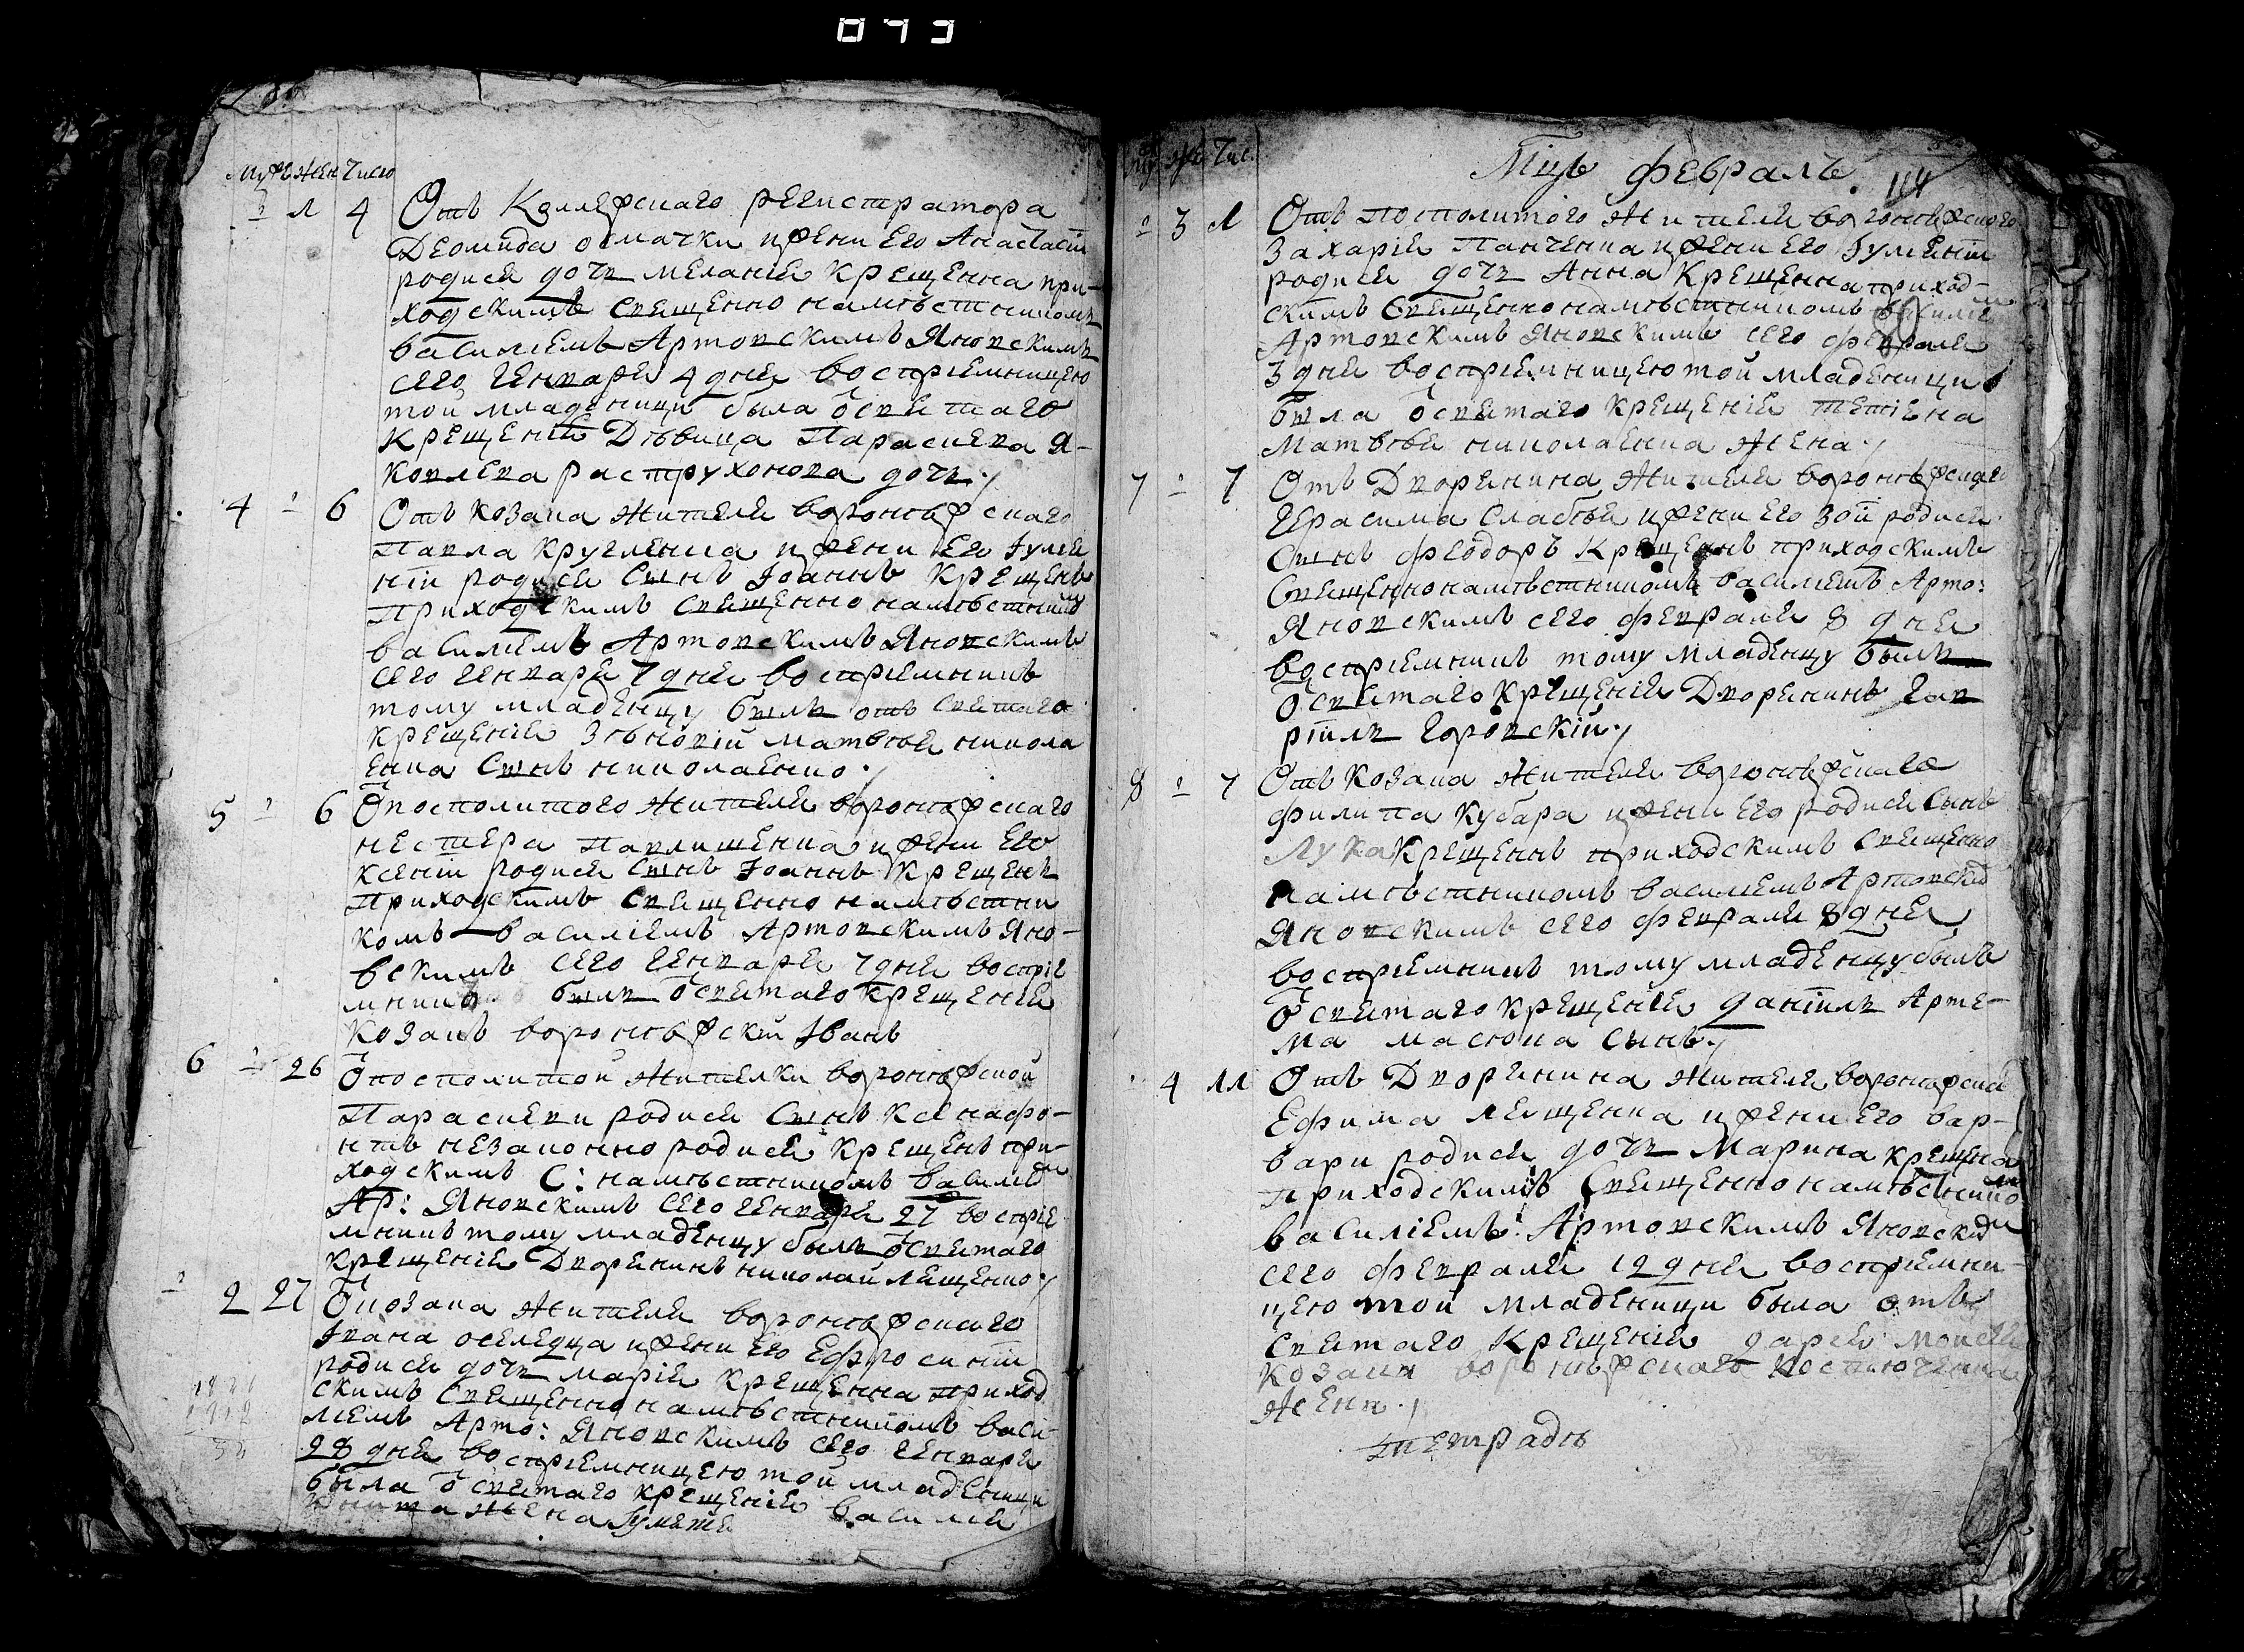 073
Мужъ Жен Число
л 4 Отъ Колежскаго регистратора
Деомида осмачки и жени его Анастасіи
родися дочь меланія крещенна при-
ходскимъ священнонамѣстникомъ
василіемъ Артовскимъ Яновскимъ
сего генваря 4 дня воспріемницею
той младеници была ѿ святаго
крещенія Дѣвица Параскева Я-
ковлева распрухонова дочь
4 6 Отъ козака жителя воронѣжскаго
Павла кругленка и жени его Іулiа
ніи родися Сынъ Іоаннъ крещенъ
приходскимъ священнонамѣстником
василіемъ Артовскимъ Яновскимъ
сего генваря 7 дня воспріемникъ
тому младенцу былъ отъ святаго
крещенія Зѣновій матвѣя никола
енка Сынъ николаенко
5 6 Ѿ посполитого жителя воронѣжскаго
нестера павлишенка и жени его
ксеніи родися Сынъ Іоаннъ крещенъ
приходскимъ священнонамѣстни
комъ василіемъ Артовскимъ Яно-
вскимъ сего генваря 7 дня воспріе
мникъ былъ ѿ святаго крещенія
козакъ воронѣжскій Іванъ
6 26 Ѿ посполитой жителки воронѣжской
Параскеви родися Сынъ ксенафо-
нтъ незаконно родися крещенъ при-
ходскимъ С: намѣстникомъ василіем
Ар: Яновскимъ сего генваря 27 воспріе
мникъ тому младенцу былъ ѿ святаго
крещенія Дворянинъ николай лещенко
2 27 Ѿ козака жителя воронѣжскаго
Івана оселедца и жени его Ефросиніи
родися дочь марія крещенна приход
скимъ священнонамѣстникомъ васи-
ліемъ Арто: Яновскимъ сего генваря
28 дня воспріемницею той младеници
была ѿ святаго крещенія василія
жена
Муж Же Чис.
Мцъ февралъ. 114
3 л Отъ посполитого жителя воронѣжского
Захарія Панченка и жени его Іулiаніи
родися дочь Анна крещенна приход-
скимъ священнонамѣстникомъ василием
Артовскимъ Яновскимъ сего февраля
3 дня воспріемницею той младеници
была ѿ святаго крещенія
матвѣя николаенка жена
7 7 Отъ Дворянина жителя воронѣжскаго
Герасима Сластьи и жени его Зои родися
Сынъ феодоръ крещенъ приходскимъ
Священнонамѣстникомъ василіемъ Арто:
Яновскимъ сего февраля 8 дня
воспріемникъ тому младенцу былъ
ѿ святаго крещенія Дворянинъ Гав
ріилъ горовскій
8 7 Отъ козака жителя воронѣжскаго
филипа кубара и жени его родися Сынъ
Лука крещеннъ приходскимъ Священно
намѣстникомъ василіемъ Артовским
Яновскимъ сего февраля 8 дня
воспріемникъ тому младенцу былъ
ѿ святаго крещенія даніилъ Арте-
ма масюка Сынъ
4 11 Отъ Дворянина жителя воронѣжска
Ефима лещенка и жени его вар-
вари родися дочь Марина крещена
приходскимъ Священнонамѣстником
василіемъ Артовскимъ Яновским
сего февраля 12 дня воспріемни-
цею той младеници была отъ
святаго крещенія дарія
козака воронѣжскаго костюченка
жена
тетрадь